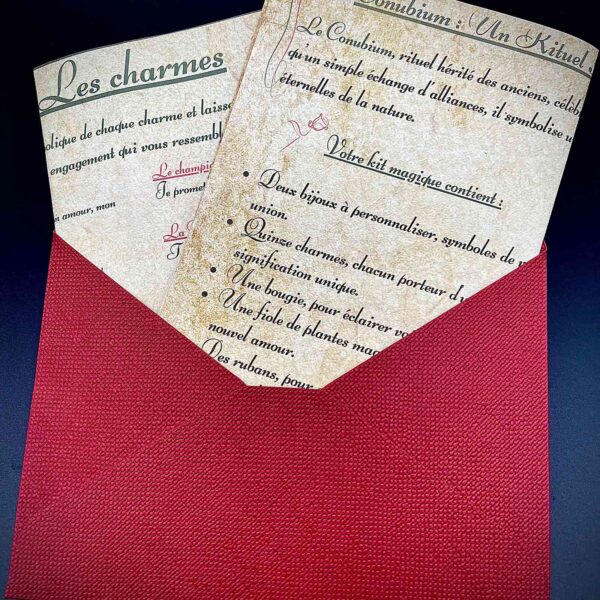 Les charmes
olique de chaque charme et laiss
engagement qui vous ressembl
Le champi
Je promet
n amour, mon
La
Conubium : Un Rituel
Le Conubium, rituel hérité des anciens, célèb
qu'un simple échange d'alliances, il symbolise u
éternelles de la nature.
Votre kit magique contient :
• Deux bijoux à personnaliser, symboles de v
union.
• Quinze charmes, chacun porteur d'u
signification unique.
• Une bougie, pour éclairer vo
• Une fiole de plantes mag
nouvel amour.
Des rubans, pour